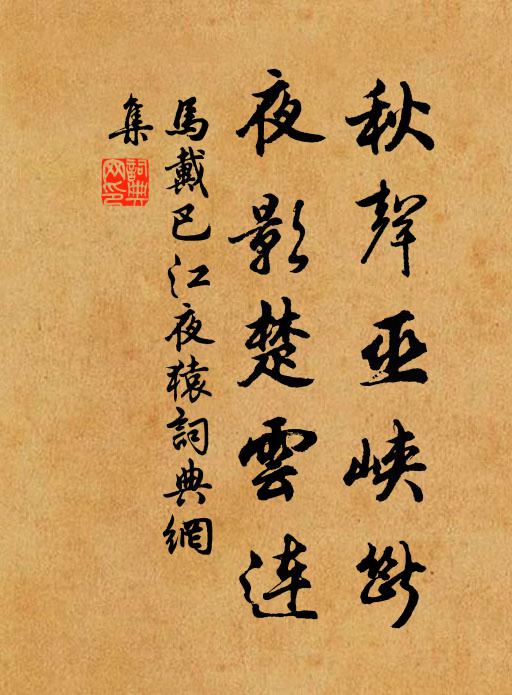 秋聲巫峽斷
夜影楚雲連
馬戴巴江夜猿詞典網
集
詞典網印